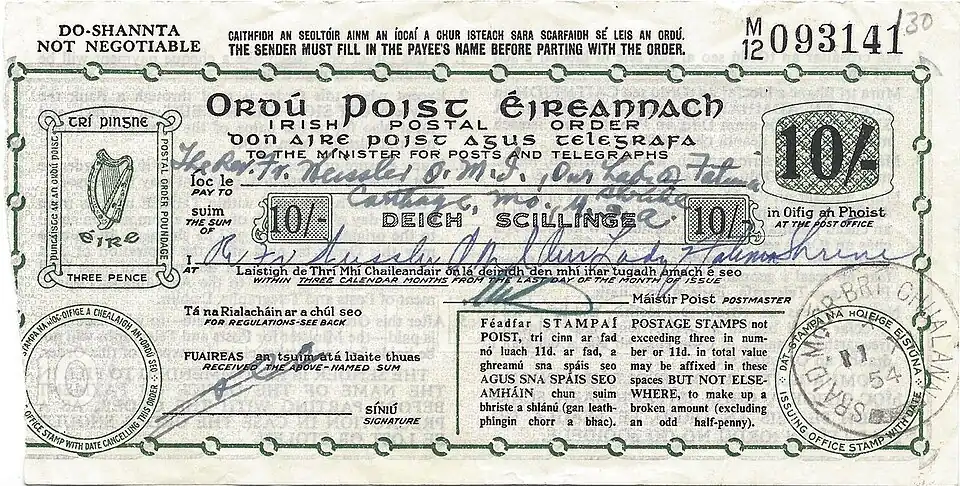 DO-SHANNTA
NOT NEGOTIABLE
CAITHFIDH AN SEOLTÓIR AINM AN ÍOCAÍ A CHUR ISTEACH SARA SCARFAIDH SÉ LEIS AN ORDÚ.
THE SENDER MUST FILL IN THE PAYEE'S NAME BEFORE PARTING WITH THE ORDER.
M/12 093141
130
Ordú Poist Éireannach
IRISH POSTAL ORDER
don aire poist agus telegrafa
TO THE MINISTER FOR POSTS AND TELEGRAPHS
trí pingne
PUNTÁISTE AR AN ORDÚ POIST
POSTAL ORDER POUNDAGE
éire
THREE PENCE
10/-
The Rev. Fr. Meussler O.M.I., Our Lady of Fatima
Íoc le
PAY TO
Carthage, Mo., U.S.A. Shrine
suim
THE SUM OF
10/- DEICH SCILLINGE 10/-
in Oifig an Phoist
AT THE POST OFFICE
I
AT
Rev Fr Meussler O M I Our Lady Fatima Shrine
Laistigh de Thrí Mhí Chaileandair ón lá deiridh den mhí ihar tugadh amach é seo
WITHIN THREE CALENDAR MONTHS FROM THE LAST DAY OF THE MONTH OF ISSUE
Máistir Poist POSTMASTER
Tá na Rialacháin ar a chúl seo
FOR REGULATIONS-SEE BACK
FUAIREAS an tsuim atá luaite thuas
RECEIVED THE ABOVE-NAMED SUM
SÍNIÚ
SIGNATURE
Féadfar STAMPAÍ
POIST, trí cinn ar fad
nó luach 11d. ar fad, a
ghreamú sna spáis seo
AGUS SNA SPÁIS SEO
AMHÁIN chun suim
bhriste a shlánú (gan leath-
phingin chorr a bhac).
POSTAGE STAMPS not
exceeding three in num-
ber or 11d. in total value
may be affixed in these
spaces BUT NOT ELSE-
WHERE, to make up a
broken amount (excluding
an odd half-penny).
STAMPA NA HOIFIGE A CHEALAÍON AN tORDÚ SEO
OFFICE STAMP WITH DATE CANCELLING THIS ORDER
DAT-STAMPA NA HOIFIGE EISIÚNA
ISSUING OFFICE STAMP WITH DATE
11
54